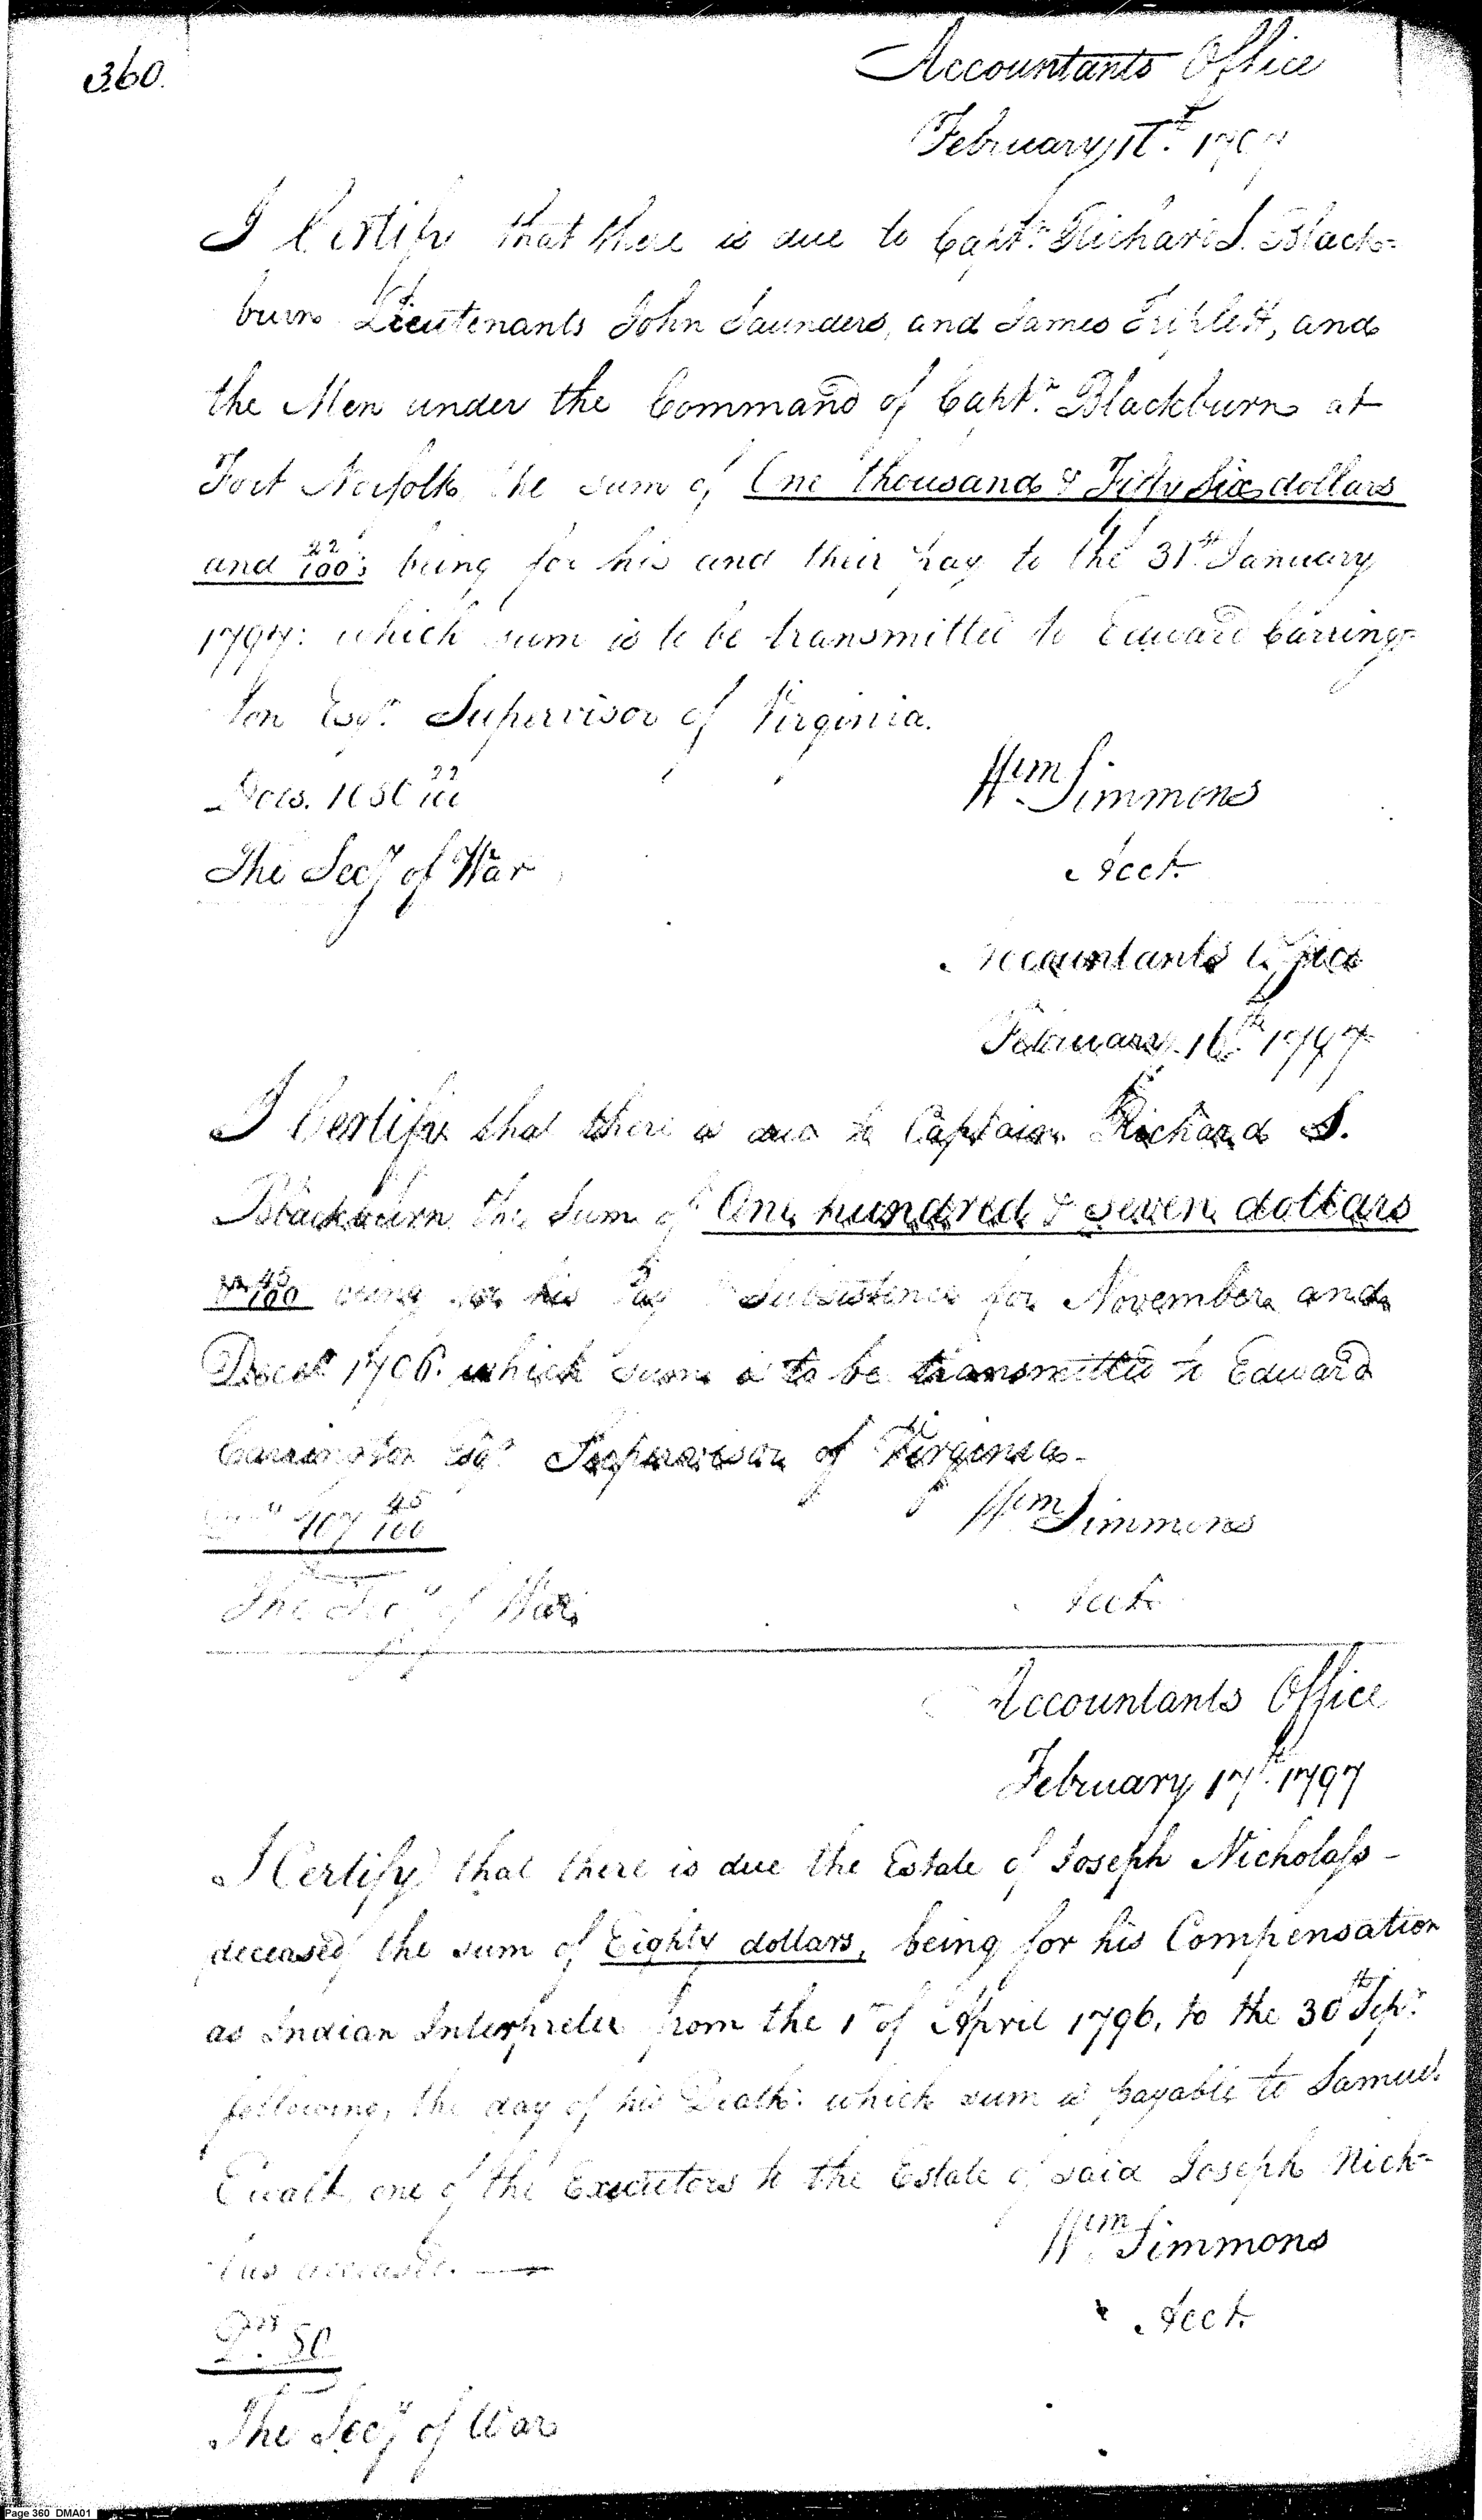 360.
Accountants Office
February 1797
I Certify that there is due to Capt.n Richard S. Black=
burn Lieutenants John Saunders, and James Triplett, and
the Men under the Command of Capt.n Blackburn at
Fort Norfolk, the sum of One thousand & Fifty Six dollars
and 22/100s being for his and their pay to the 31st January
1797: which sum is to be transmitted to Edward Carring=
ton Esqr. Supervisor of Virginia.
Dols. 1056 22/100
Wm Simmons
The Secy of War
Acct.
Accountants Office
February 16th 1797
I Certify that there is due to Captain Richard S.
Blackburn the Sum of One hundred & seven dollars
& 45/100 being for his Pay & Subsistence for November and
Decr 1796. which sum is to be transmitted to Edward
Carrington Esqr Supervisor of Virginia.
107 45/100
Wm Simmons
The Secy of War
Acct.
Accountants Office
February 17th 1797
I Certify that there is due the Estate of Joseph Nicholass
deceased the sum of Eighty dollars, being for his Compensation
as Indian Interpreter from the 1st of April 1796, to the 30th Sepr.
following, the day of his Death: which sum is payable to Samuel
Ewalt one of the Executors to the Estate of said Joseph Nich=
=lus deceased.
Wm Simmons
Drs 80
Acct.
The Secy of War
Page 360 DMA01